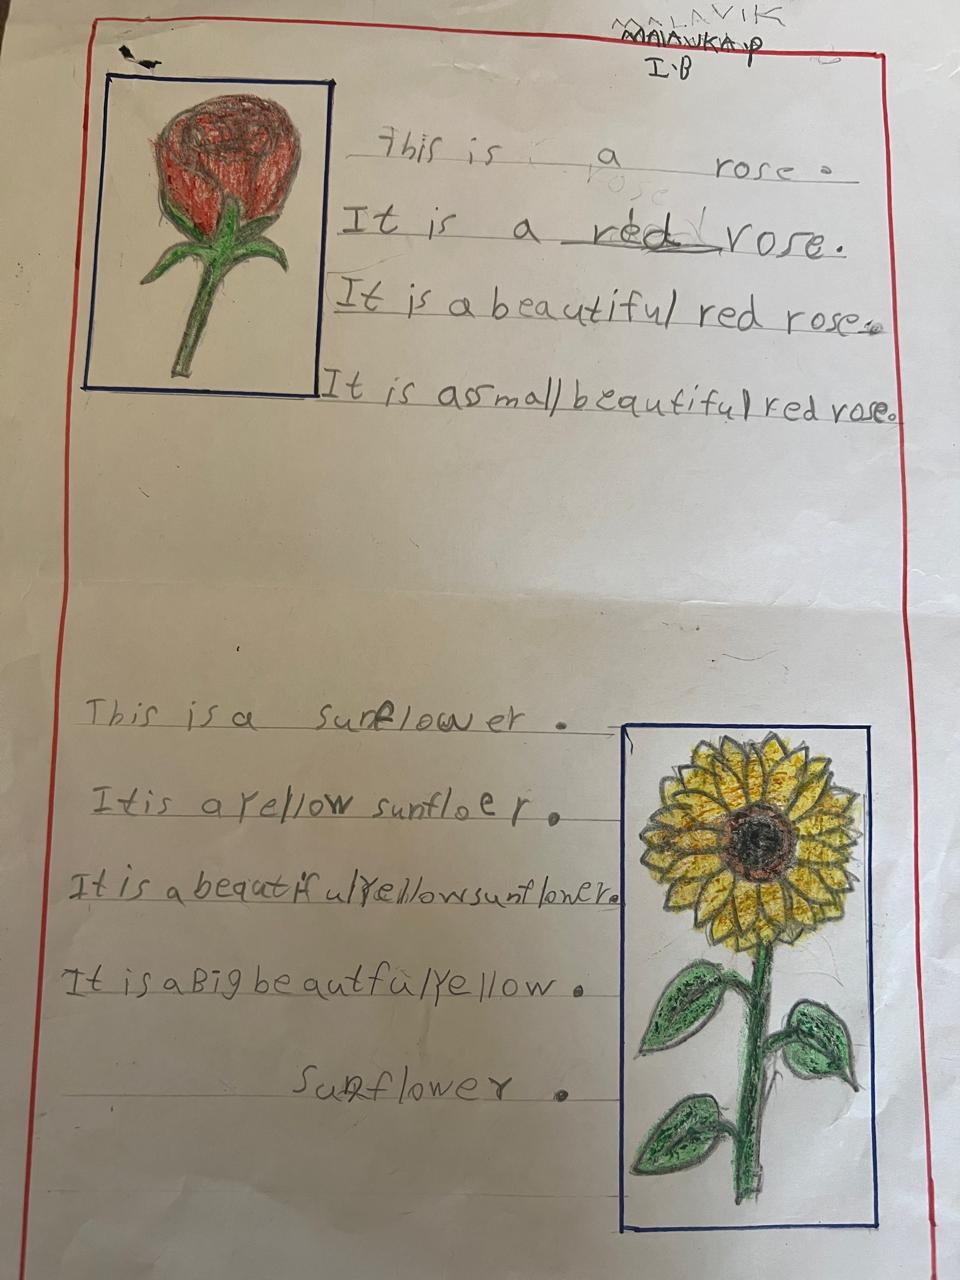 MALAVIK
MALAVIKA P
I-B
This is a rose.
rose
It is a red rose.
It is a beautiful red rose.
It is a small beautiful red rose.
This is a sunflower.
It is a Yellow sunfloer.
It is a beautiful Yellow sunflower.
It is a Big beautful Yellow.
Sunflower.